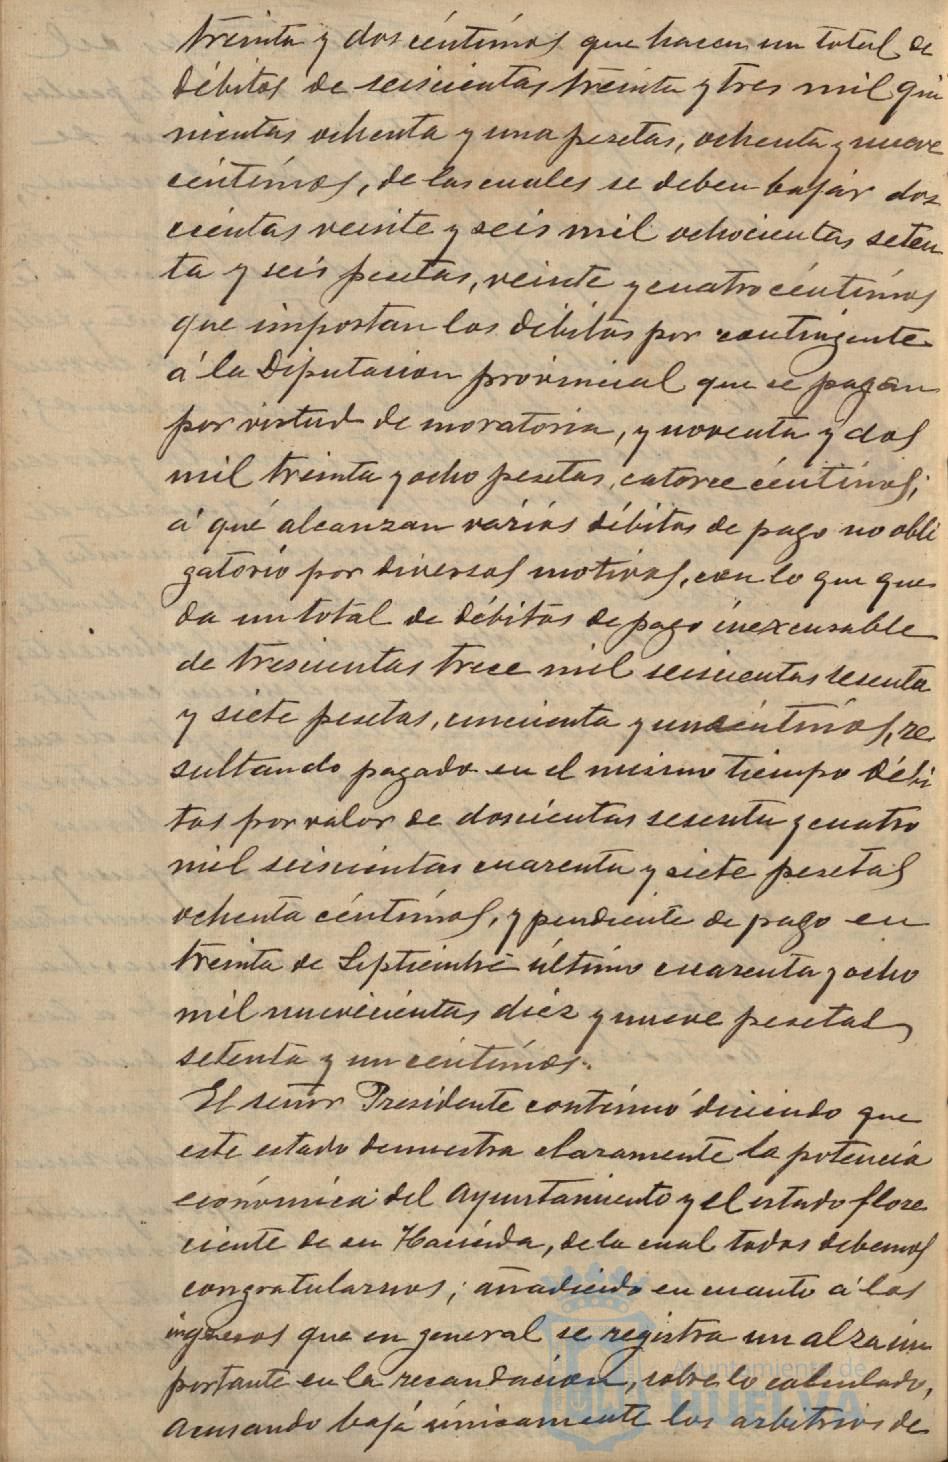 treinta y dos céntimos que hacen un total de
débitos de seiscientas treinta y tres mil qui
nientas ochenta y una pesetas, ochenta y nueve
céntimos, de las cuales se deben bajar dos
cientas veinte y seis mil ochocientas seten
ta y seis pesetas, veinte y cuatro céntimos
que importan los débitos por contingente
á la Diputacion provincial que se pagan
por virtud de moratoria, y noventa y dos
mil treinta y ocho pesetas, catorce céntimos,
á qué alcanzan varios débitos de pago no obli
gatorio por diversos motivos, con lo que que
da un total de débitos de pago inexcusable
de trescientas trece mil seiscientas sesenta
y siete pesetas, cincuenta y un céntimos, re
sultando pagado en el mismo tiempo débi
tos por valor de doscientas sesenta y cuatro
mil seiscientas cuarenta y siete pesetas
ochenta céntimos, y pendiente de pago en
treinta de Septiembre último cuarenta y ocho
mil nuevecientas diez y nueve pesetas
setenta y un céntimos.
El señor Presidente continuó diciendo que
este estado demuestra claramente la potencia
económica del Ayuntamiento y el estado flore
ciente de su Hacienda, de la cual todos debemos
congratularnos; añadiendo en cuanto á los
ingresos que en general se registra un alza im
portante en la recaudacion, sobre lo calculado,
acusando baja únicamente los arbitrios de
Ayuntamiento de
HUELVA